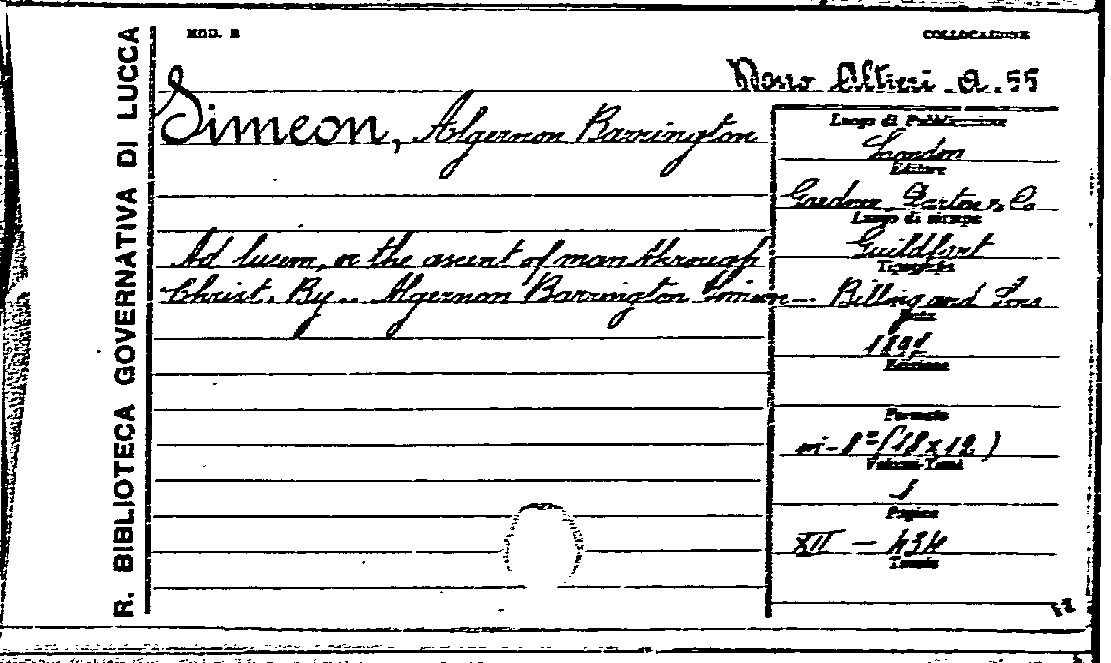 R. BIBLIOTECA GOVERNATIVA DI LUCCA
MOD. B
COLLOCAZIONE
Altieri . a . 55
Simeon, Algernon Barrington
Luogo di Pubblicazione
London
Editore
Gardner, Darton & Co
Luogo di stampa
Ad lucem, or the ascent of man through
Guildfort
Tipografia
Christ. By .. Algernon Barrington Simeon -- Billing and Sons
Data
Edizione
Formato
in-8º (18x12)
Volumi-Tomi
1
Pagine
XII — 434
Tavole